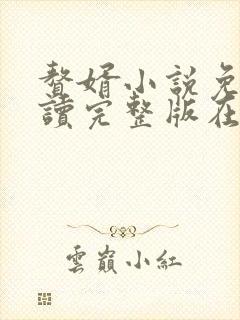 贅婿小説免
讀完整版在
雲巔小紅